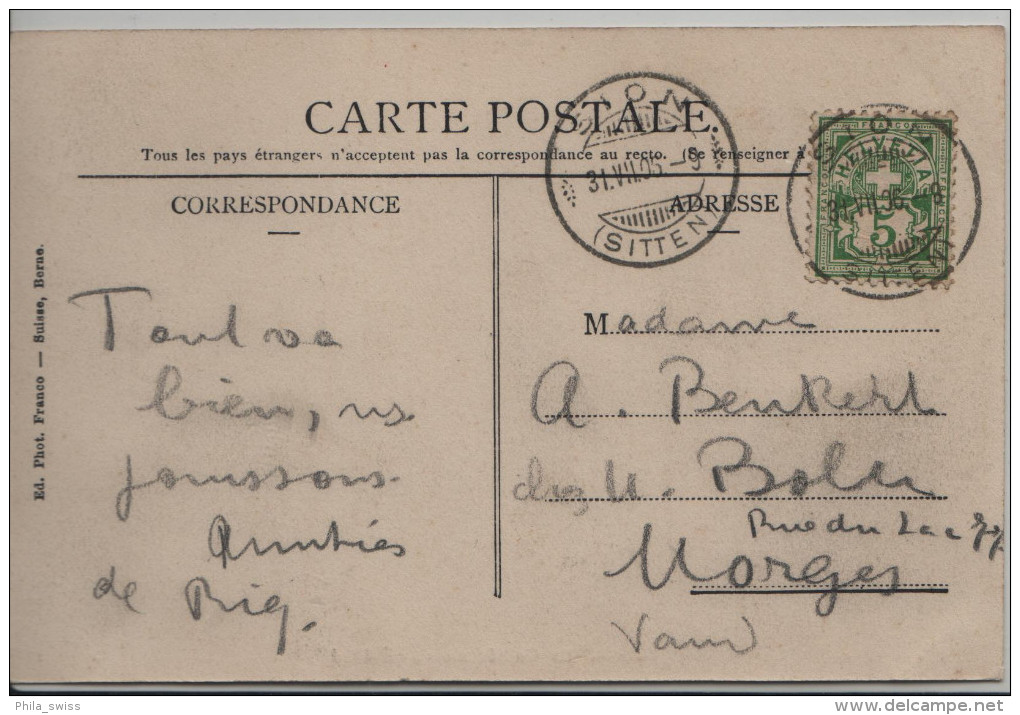 CARTE POSTALE.
Tous les pays étrangers n'acceptent pas la correspondance au recto. (Se renseigner à
CORRESPONDANCE
ADRESSE
SION
31.VII.05.-8
(SITTEN)
SION
31.VII.05.-8
SITTEN
FRANCO
HELVETIA
5
Ed. Phot. Franco — Suisse, Berne.
Tout va
bien, ns
jouissons.
Amitiés
de
Madame
A. Benkert
chez M.
Rue du Lac
Morges
Vaud
Phila_swiss
delcampe.net